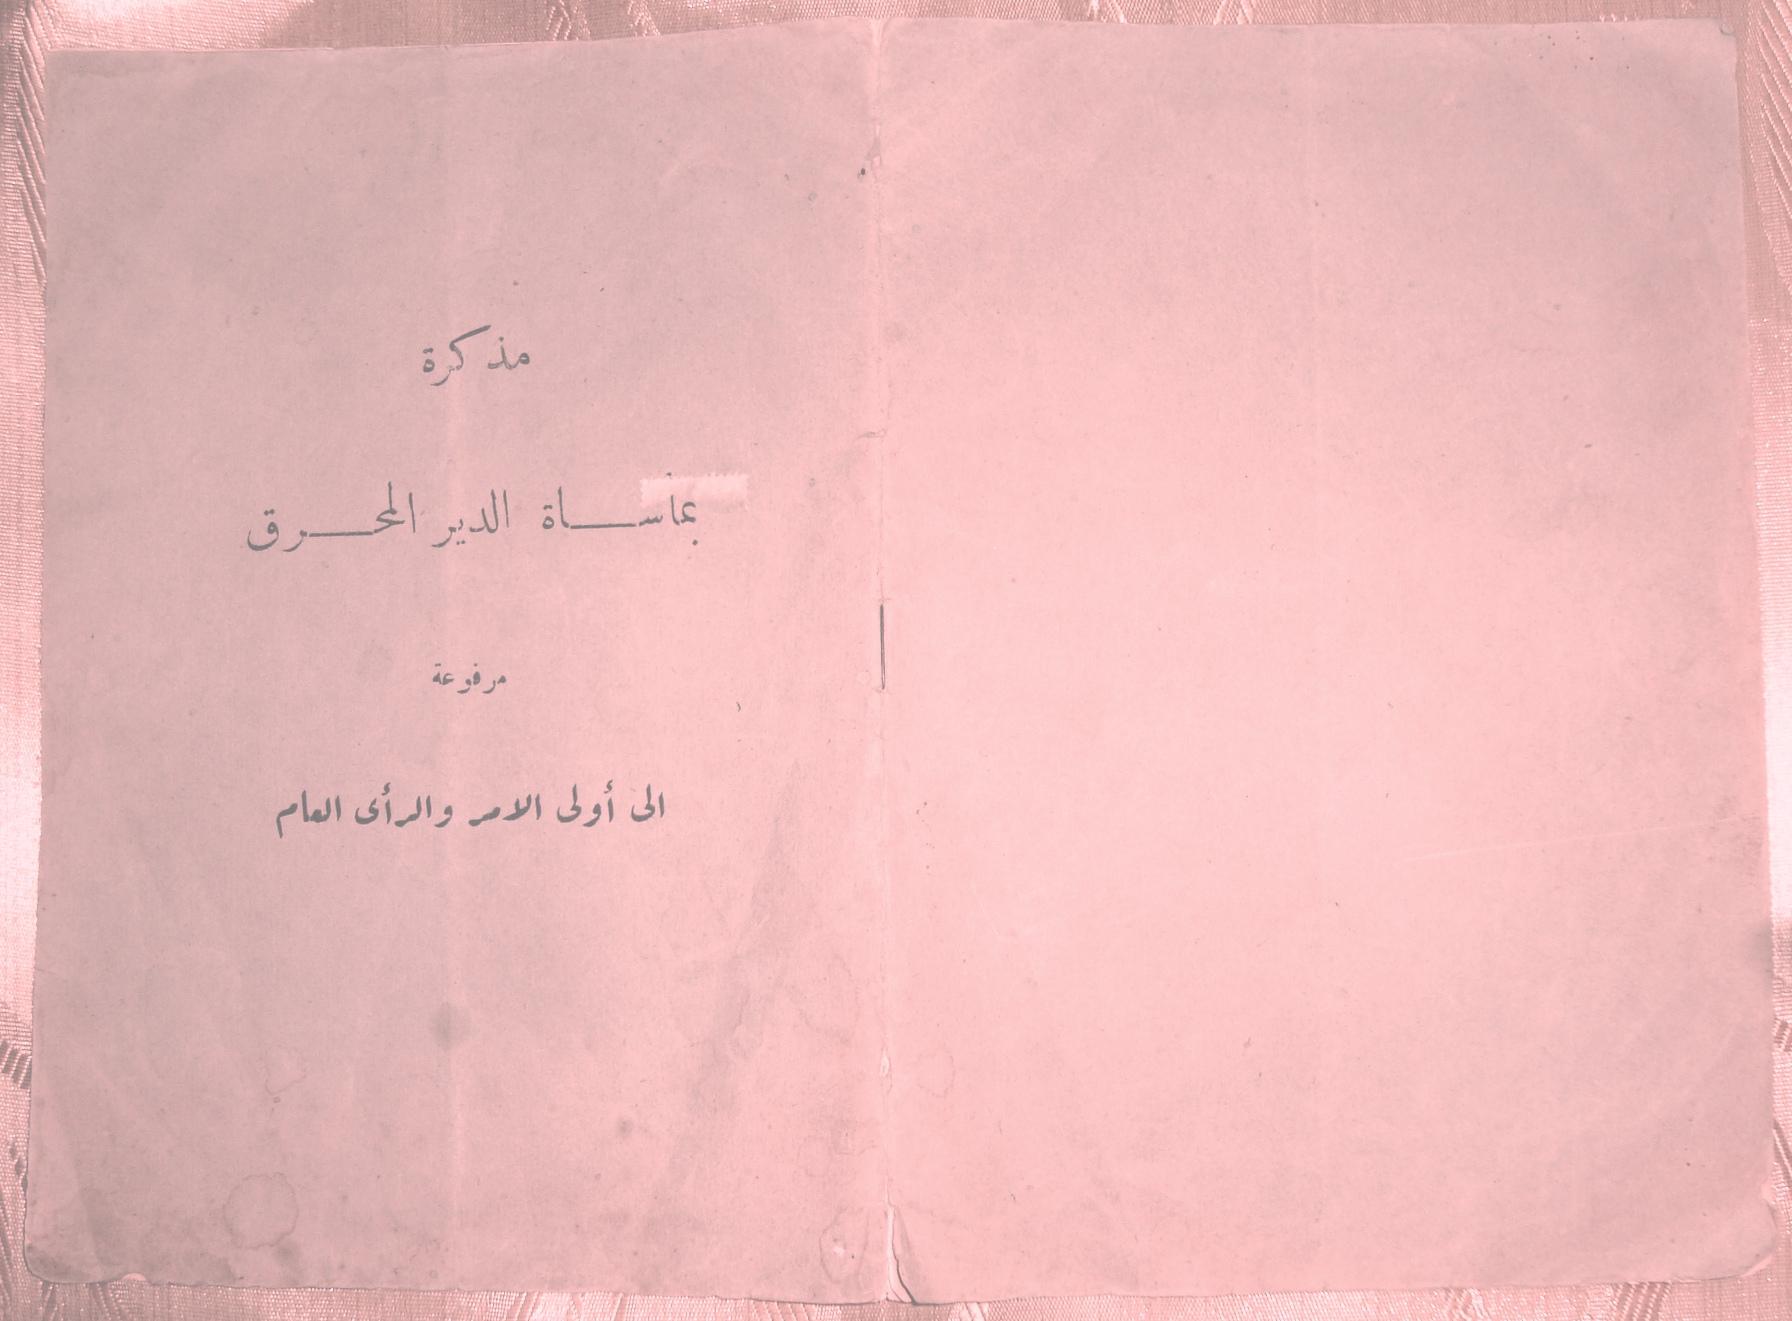 مذكرة
بمأساة الدير المحرق
مرفوعة
الى أولى الامر والرأى العام